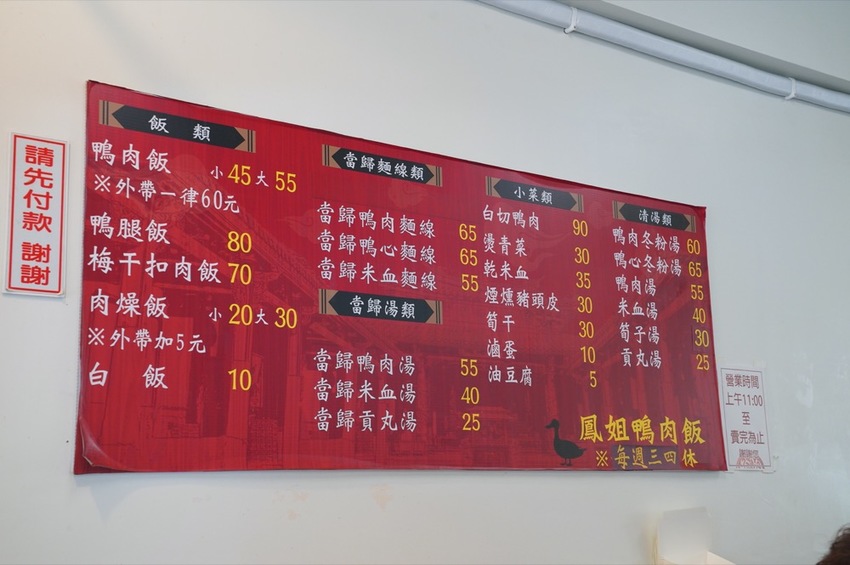 請先付款 謝謝
飯 類
鴨肉飯 小45大55
※外帶一律60元
鴨腿飯 80
梅干扣肉飯 70
肉燥飯 小20大30
※外帶加5元
白 飯 10
當歸麵線類
當歸鴨肉麵線 65
當歸鴨心麵線 65
當歸米血麵線 55
當歸湯類
當歸鴨肉湯 55
當歸米血湯 40
當歸貢丸湯 25
小菜類
白切鴨肉 90
燙青菜 30
乾米血 35
煙燻豬頭皮 30
筍干 30
滷蛋 10
油豆腐 5
清湯類
鴨肉冬粉湯 60
鴨心冬粉湯 65
鴨肉湯 55
米血湯 40
筍子湯 30
貢丸湯 25
鳳姐鴨肉飯
※每週三四休
營業時間
上午11:00
至
賣完為止